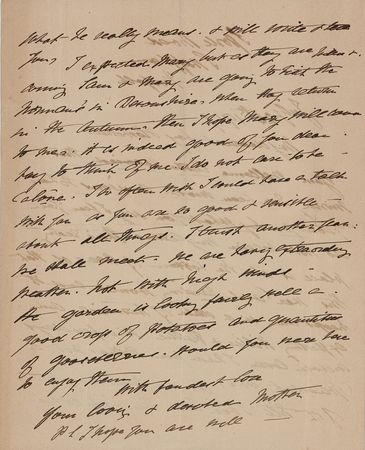 What he really means. & will write & tell
you, I expected Mary but as they are
coming Sam & Mary are going to visit the
in Devonshire, when they return
in the Autumn, then I hope Mary will come
to me. it is indeed good of you dear
boy to think of me I do not care to be
alone. I so often wish I could have a talk
with you as you are so good & sensible
about all things. I trust another year
we shall meet. We are having extraordinary
weather. Hot with high winds
the garden is looking fairly well a
good crop of Potatoes and quantities
of gooseberries. Would you were here
to enjoy them
With fondest love
Your loving & devoted Mother
P.S. I hope you are well